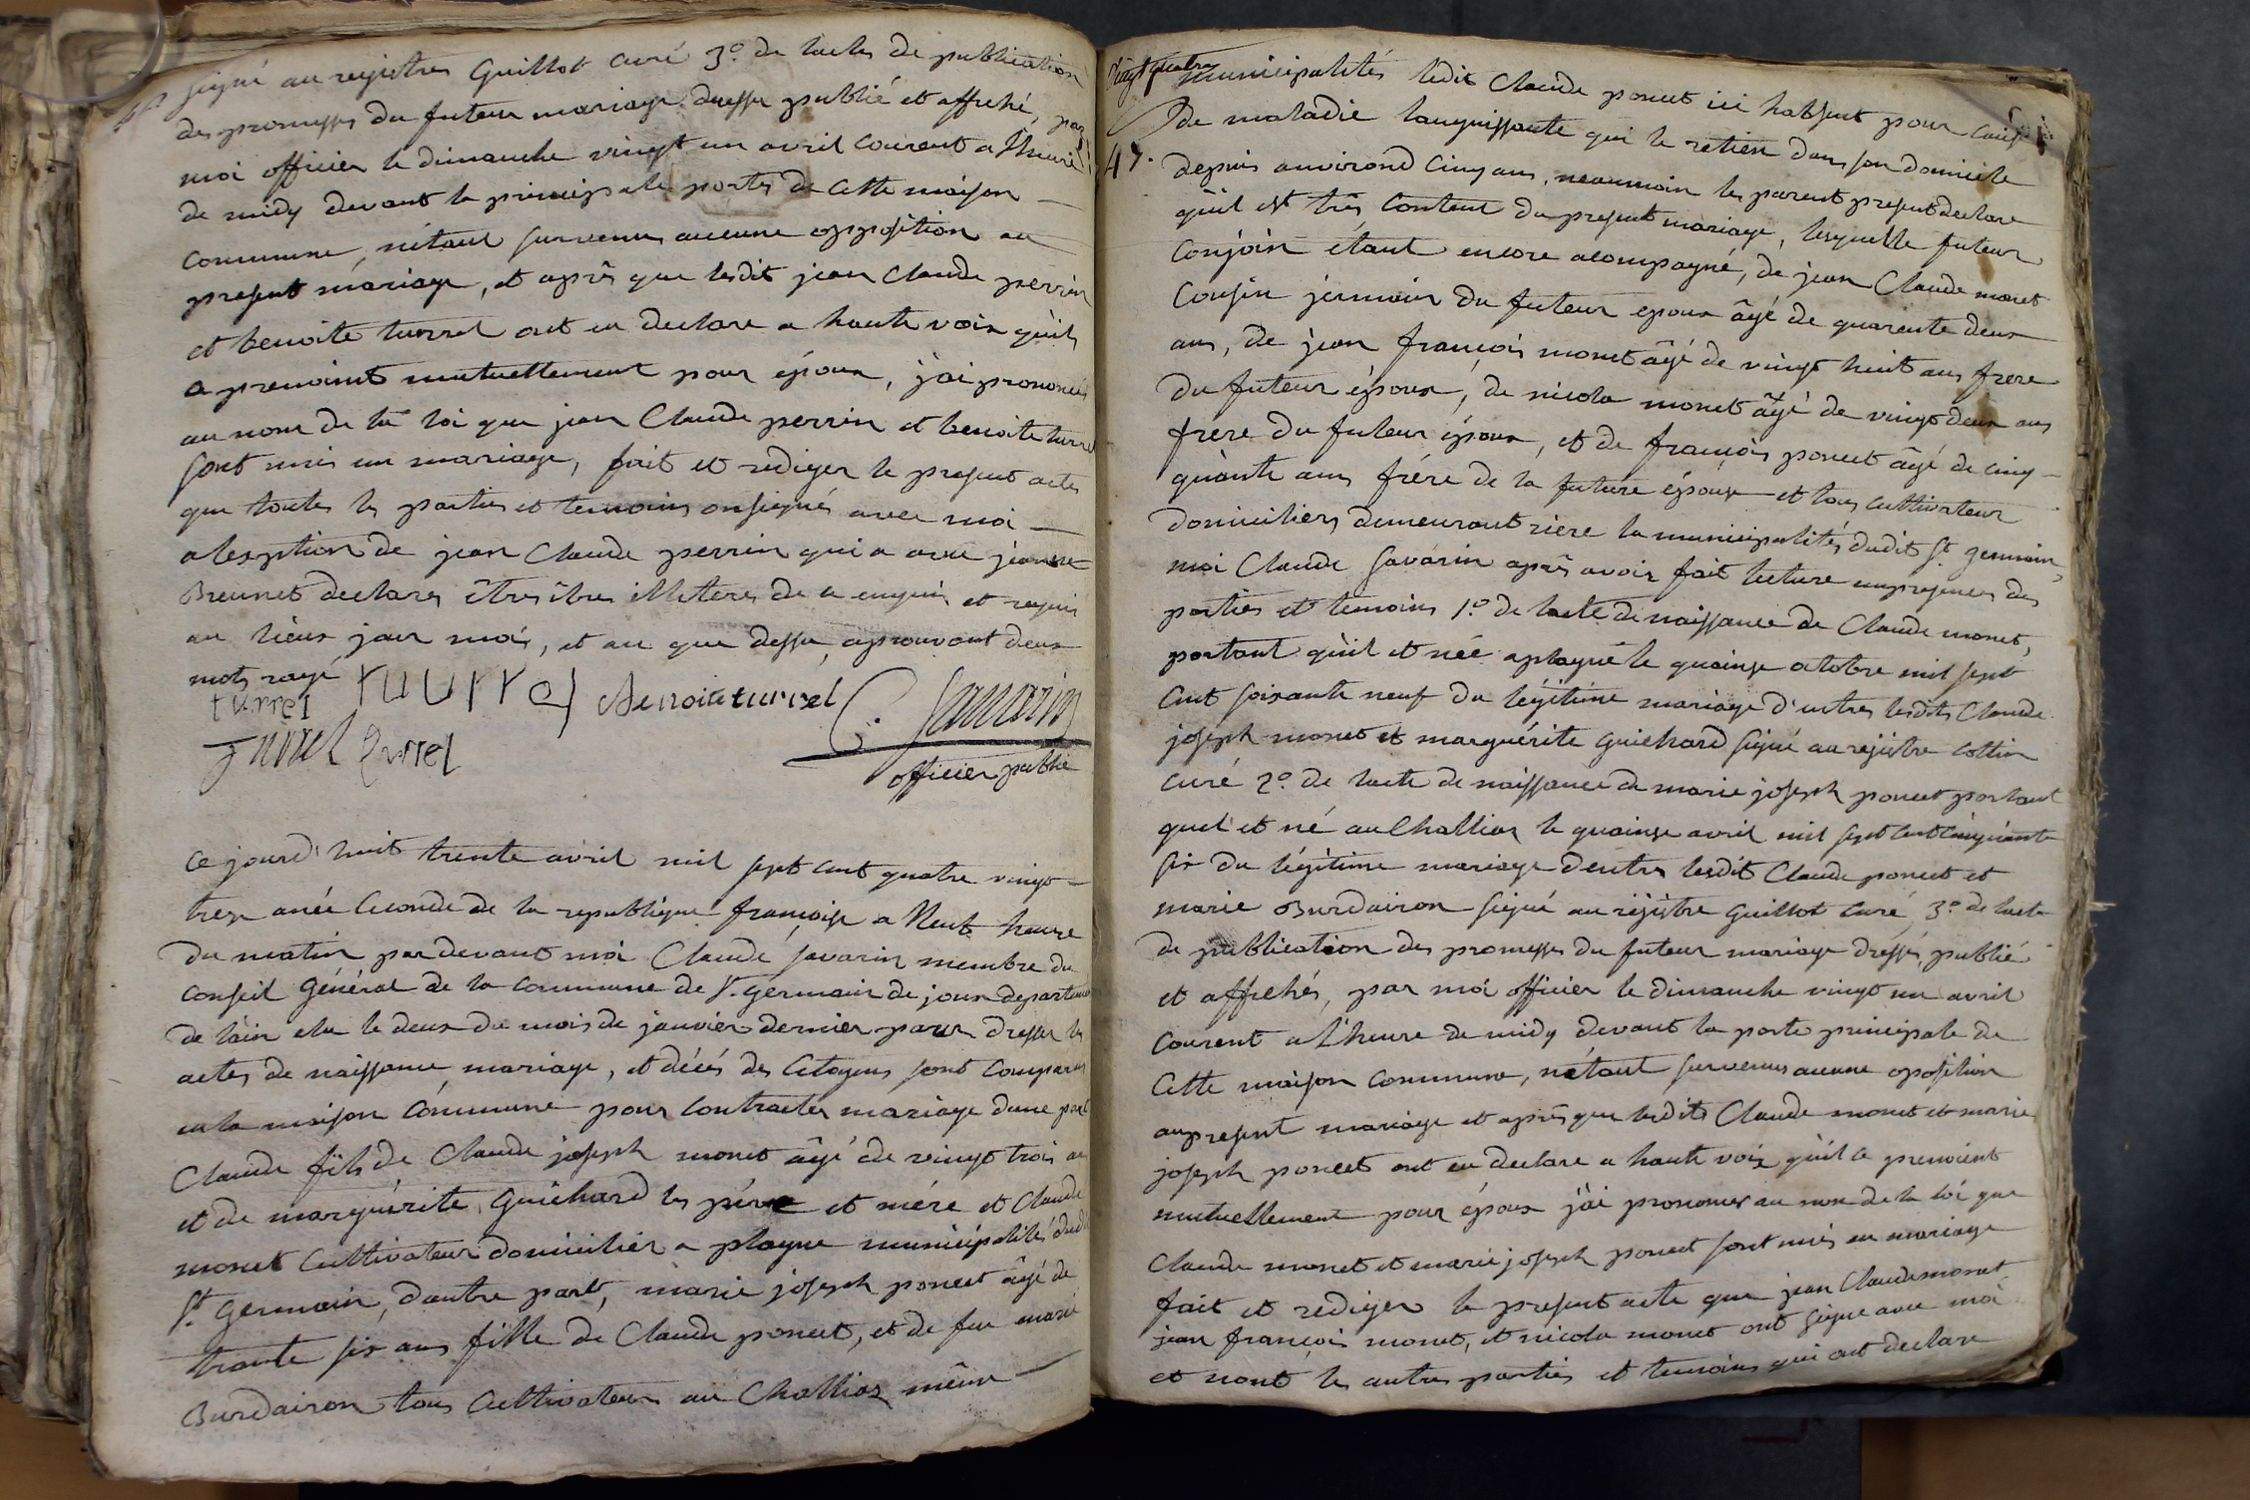 signé au registres Guillot curé 3.º de lactes de publication
des promesses du futeur mariage dresse publié et affiché, par
moi officier le dimanche vingt un avril courent a l'heure
de midy devant la principale portes de cette maison
commune, nétant survenu aucune opposition au
present mariage, et après que lesdit jean Claude perrin
et benoite turrel ont eu declare a haute voix qu'ils
a prenoint mutuellement pour époux, j'ai prononcés
au nom de la loi que jean Claude perrin et benoite turrel
sont unis en mariage, fait et rediger le present actes
que toutes les parties et temoins onsignés avec moi
a lexption de jean Claude perrin qui a avec jeanne
Breunet declares être illiteres de ce enquis et requis
au lieux jour mois, et an que dessu aprouvant deux
mots rayé
turrel turrel Benoite turrel C. Savarin
turrel turrel
officier public
Ce jourd'huit trente avril mil sept cent quatre vingt
treze anée seconde de la republique françoise a Neuf heure
du matin pardevant moi Claude Savarin membre du
Conseil Général de la Commune de St. germain de joux departement
de l'ain elu le deux du mois de janvier dernier pour dresser les
actes de naissance mariage, et décés des Citoyens sont Comparus
en la maison Commune pour Contracter mariage dune part
Claude fils de Claude joseph monet âgé de vingt trois an
et de marguérite Guichard les pére et mére et Claude
monet Cultivateur domicilier a plagne municipalités dudit
St. Germain, d'autre part, marie joseph poncet âgé de
trante six ans fille de Claude poncet, et de feu marie
Burdairon tous Cultivateurs au Challiaz même
Vingt quatre
municipalités ledit Claude poncet ici habsent pour Cause
de maladie languissante qui le retien dans son domicile
47.
depuis anvirond Cinq ans, neanmoin les parent present declare
qu'il est très Content du present mariage, lesquelle futeur
Conjoin étant encore acompagné, de jean Claude monet
Cousin jermain du futeur epoux âgé de quarente deux
ans, de jean françois monet âgé de vingt huit ans frere
du futeur époux, de nicola monet âgé de vingt deux ans
frere du futeur époux, et de françois poncet âgé de cinq
quante ans frére de la future épouse et tous cultivateur
domiciliers demeurant riere la municipalités dudit St. germain,
moi Claude Savarin après avoir fait lecture empresence des
parties et temoins 1.º de lacte de naissance de Claude monet,
portant qu'il et néé aplagne le quainze octobre mil sept
Cent soixante neuf du légitime mariage d'entres lesdits Claude
joseph monet et marguérite Guichard signé au rejistre Collin
Curé 2.º de lacte de naissance de marie joseph poncet portant
quel et né au Challiaz le quainze avril mil sept cent cinquante
six du légitime mariage dentre lesdit Claude poncet et
marie Burdairon signé au réjistre Guillot Curé, 3.º de lacte
de publication des promesses du futeur mariage dressés, publié
et affichés, par moi officier le dimanche vingt un avril
Courent a l'heure de midy devant la porte principale de
Cette maison Commune, nétant survenus aucune oposition
aupresent mariage et après que lesdits Claude monet et marie
joseph poncet ont eu declare a haute voix quil ce prenoient
mutuellement pour époux j'ai prononcer au nom de la loi que
Claude monet et marie joseph poncet sont unis en mariage
fait et rediger le present acte que jean Claude monet
jean françois monet, et nicola monet ont signe avec moi
et nont les autres parties et temoins qui ont declare